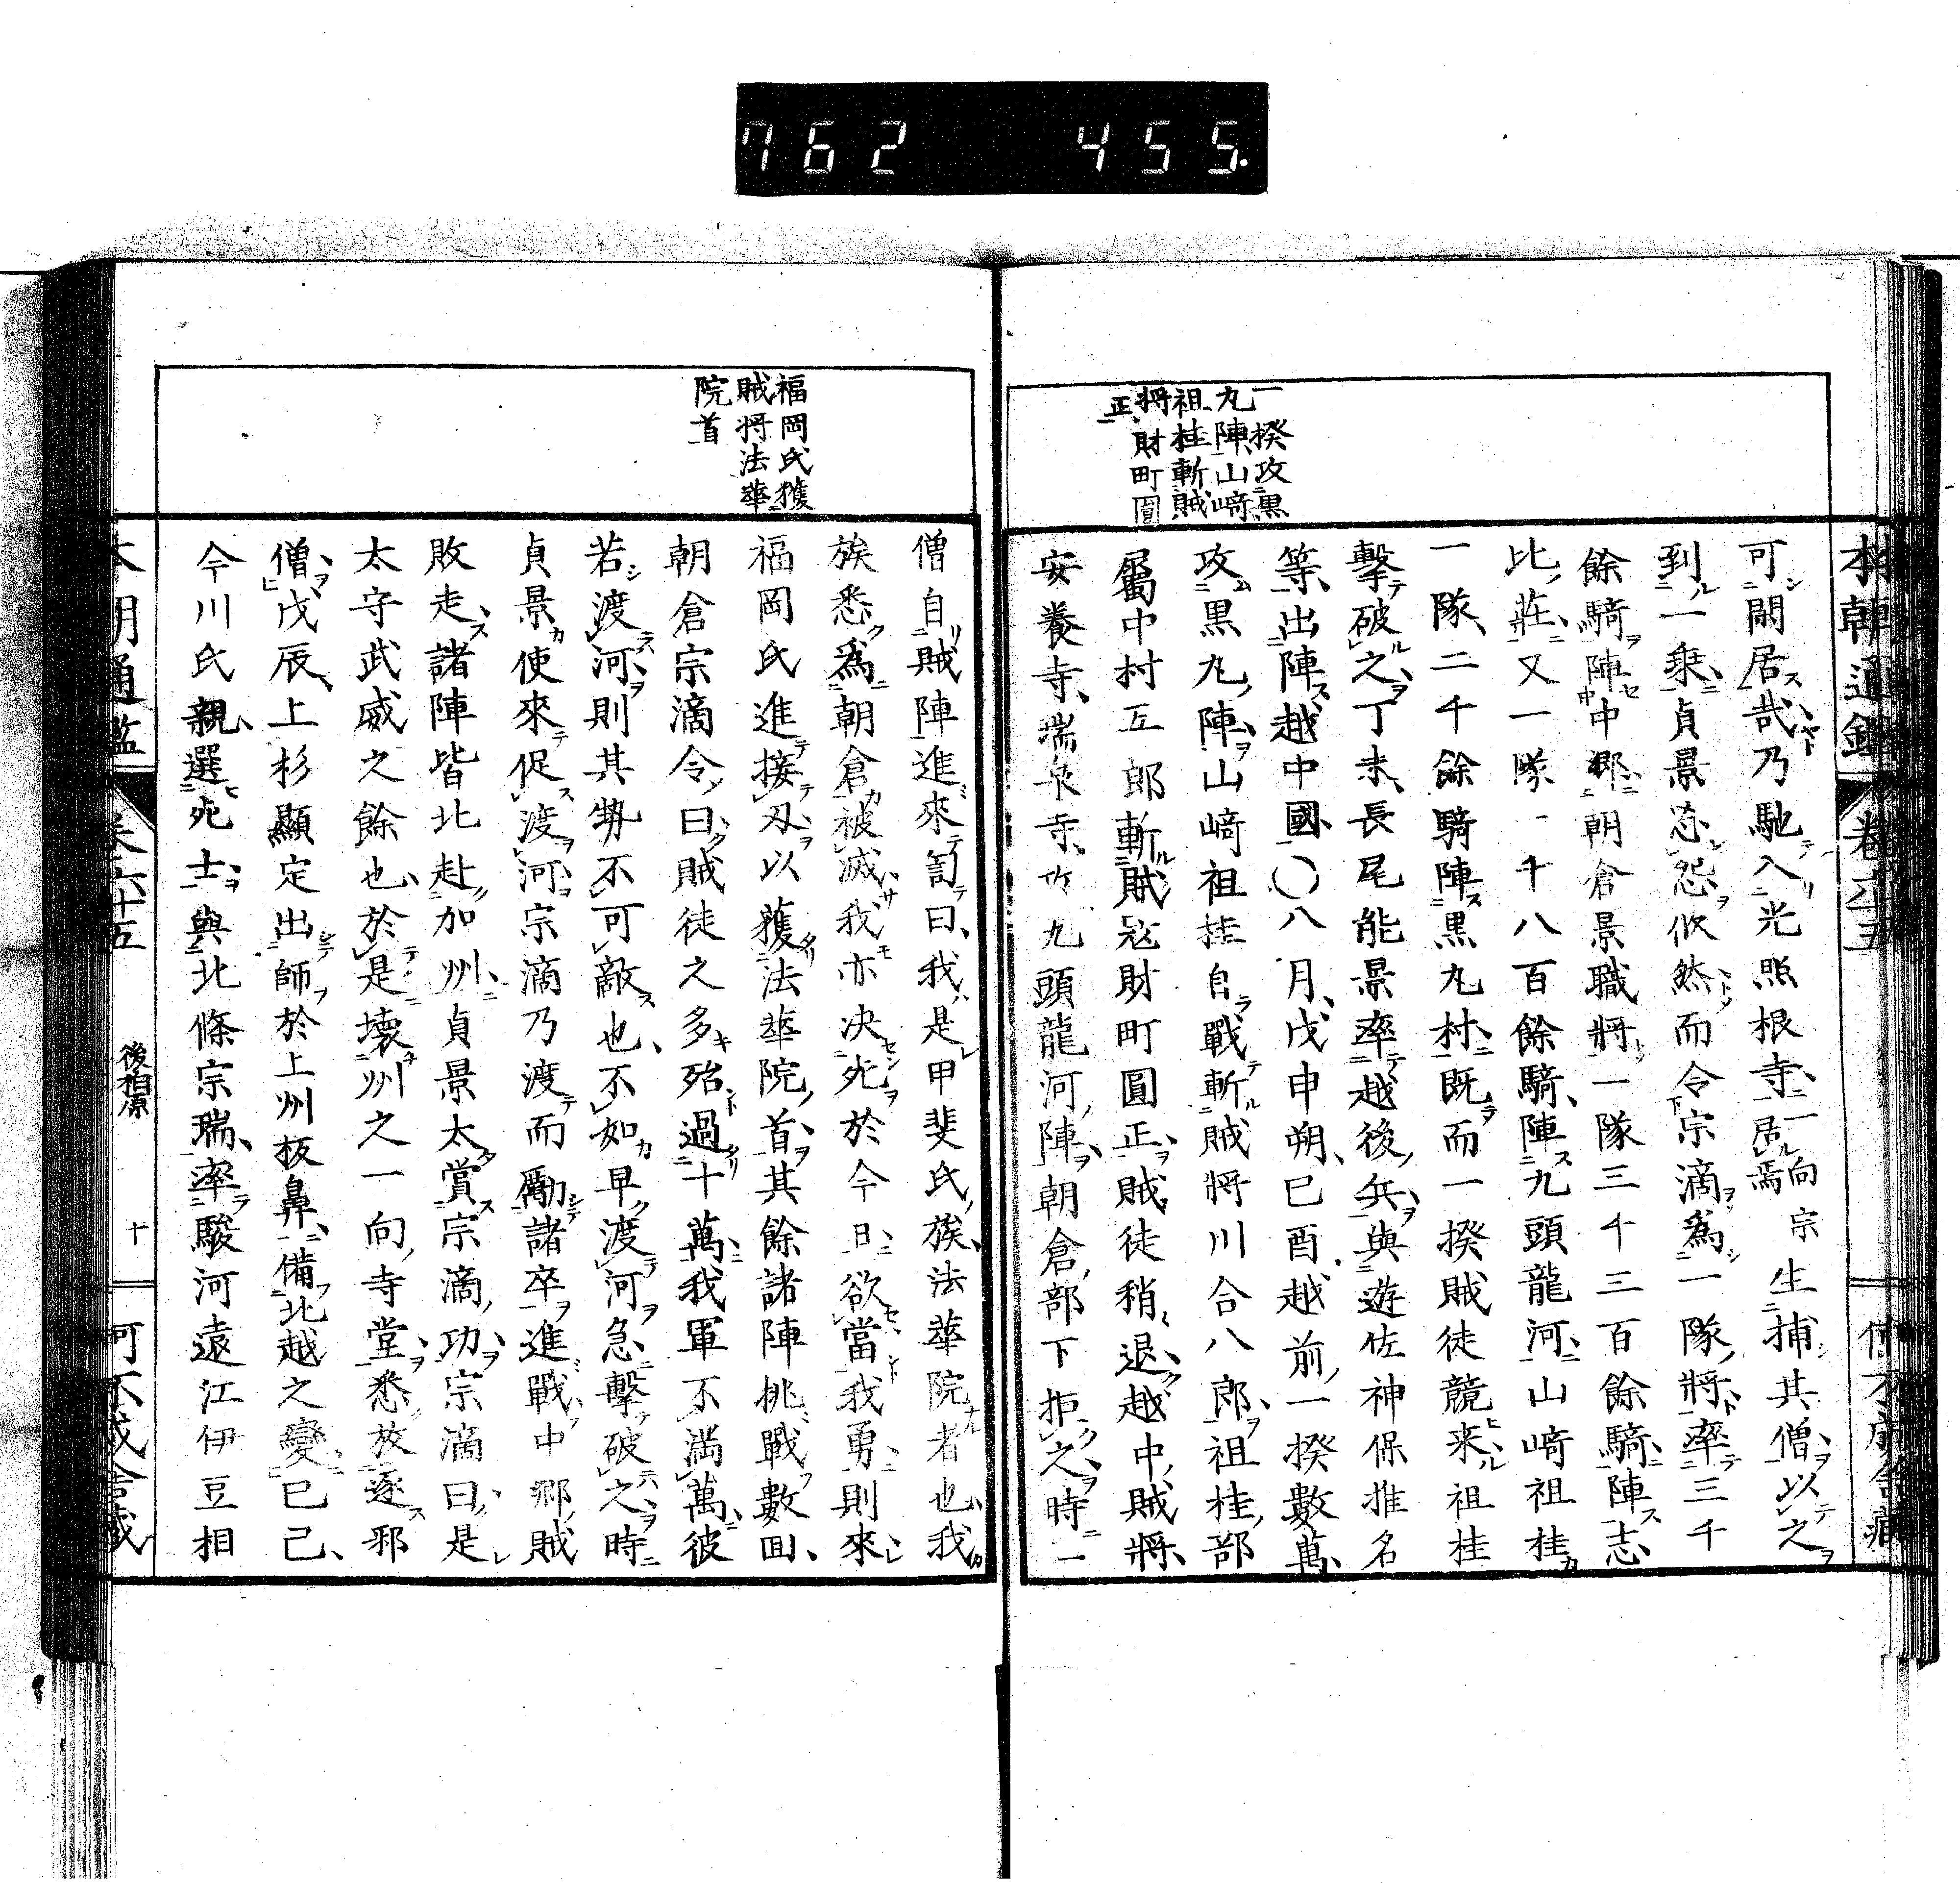 762 455.
本朝通鑑 卷六十五
一揆攻黒
九陣山﨑
祖桂斬賊
將財町圓
正
可閑居哉乃馳入光照根寺一向宗居焉生捕其僧以之
到一乗貞景忿怨攸然而令宗滴為一隊將率三千
餘騎陣中郷朝倉景職將一隊三千三百餘騎陣志
比莊又一隊一千八百餘騎陣九頭龍河山﨑祖桂
一隊二千餘騎陣黒丸村既而一揆賊徒競来祖桂
擊破之丁未長尾能景率越後兵與遊佐神保推名
等出陣越中國〇八月戊申朔己酉越前一揆數萬
攻黒丸陣山﨑祖桂自戰斬賊將川合八郎祖桂部
屬中村五郎斬賊冦財町圓正賊徒稍退越中賊將
安養寺瑞泉寺攻九頭龍河陣朝倉部下拒之時一
福岡氏獲
賊將法華
院首
僧自賊陣進來訇曰我是甲斐氏族法華院者也我
族悉為朝倉被滅我亦决死於今日欲當我勇則來
福岡氏進接刃以獲法華院首其餘諸陣挑戰數囬
朝倉宗滴令曰賊徒之多殆過十萬我軍不満萬彼
若渡河則其勢不可敵也不如早渡河急擊破之時
貞景使來促渡河宗滴乃渡而勵諸卒進戰中郷賊
敗走諸陣皆北赴加州貞景太賞宗滴功宗滴曰是
太守武威之餘也於是壊州之一向寺堂悉放逐邪
僧戊辰上杉顯定出師於上州板鼻備北越之變己巳
今川氏親選死士與北條宗瑞率駿河遠江伊豆相
本朝通鑑 卷六十五 後柏原 十